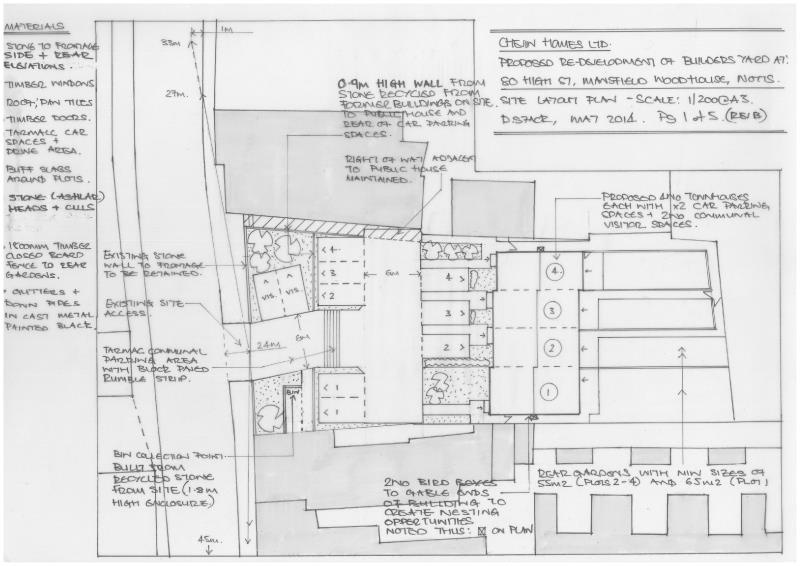 MATERIALS
STONE TO FRONTAGE
SIDE + REAR
ELEVATIONS.
TIMBER WINDOWS
ROOF, PAN TILES
TIMBER DOORS.
TARMAC CAR
SPACES +
DRIVE AREA.
BUFF SLABS
AROUND PLOTS.
STONE (ASHLAR)
HEADS + CILLS
1800MM TIMBER
CLOSED BOARD
FENCE TO REAR
GARDENS.
GUTTERS +
DOWN PIPES
IN CAST METAL
PAINTED BLACK.
1M
33M
27M.
0.9M HIGH WALL FROM
STONE RECYCLED FROM
FORMER BUILDINGS ON SITE.
TO PUBLIC HOUSE AND
REAR OF CAR PARKING
SPACES.
RIGHT OF WAY ADJACENT
TO PUBLIC HOUSE
MAINTAINED.
CHEVIN HOMES LTD.
PROPOSED RE-DEVELOPMENT OF BUILDERS YARD AT:
80 HIGH ST, MANSFIELD WOODHOUSE, NOTTS.
SITE LAYOUT PLAN - SCALE: 1/200@A3.
D.STACK, MAY 2014. Pg 1 of 5. (REV B)
PROPOSED 4NO TOWNHOUSES
EACH WITH x2 CAR PARKING
SPACES + 2NO COMMUNAL
VISITOR SPACES.
EXISTING STONE
WALL TO FRONTAGE
TO BE RETAINED.
EXISTING SITE
ACCESS.
TARMAC COMMUNAL
PARKING AREA
WITH BLOCK PAVED
RUMBLE STRIP.
VIS.
VIS.
4
3
2
6M
6M
2.4M
1
1
BIN
4
3
2
4
3
2
1
BIN COLLECTION POINT
BUILT FROM
RECYCLED STONE
FROM SITE (1.8M
HIGH ENCLOSURE)
45M.
2NO BIRD BOXES
TO GABLE ENDS
OF BUILDING TO
CREATE NESTING
OPPORTUNITIES
NOTED THUS: ON PLAN
REAR GARDENS WITH MIN SIZES OF
55M2 (PLOTS 2-4) AND 65M2 (PLOT 1